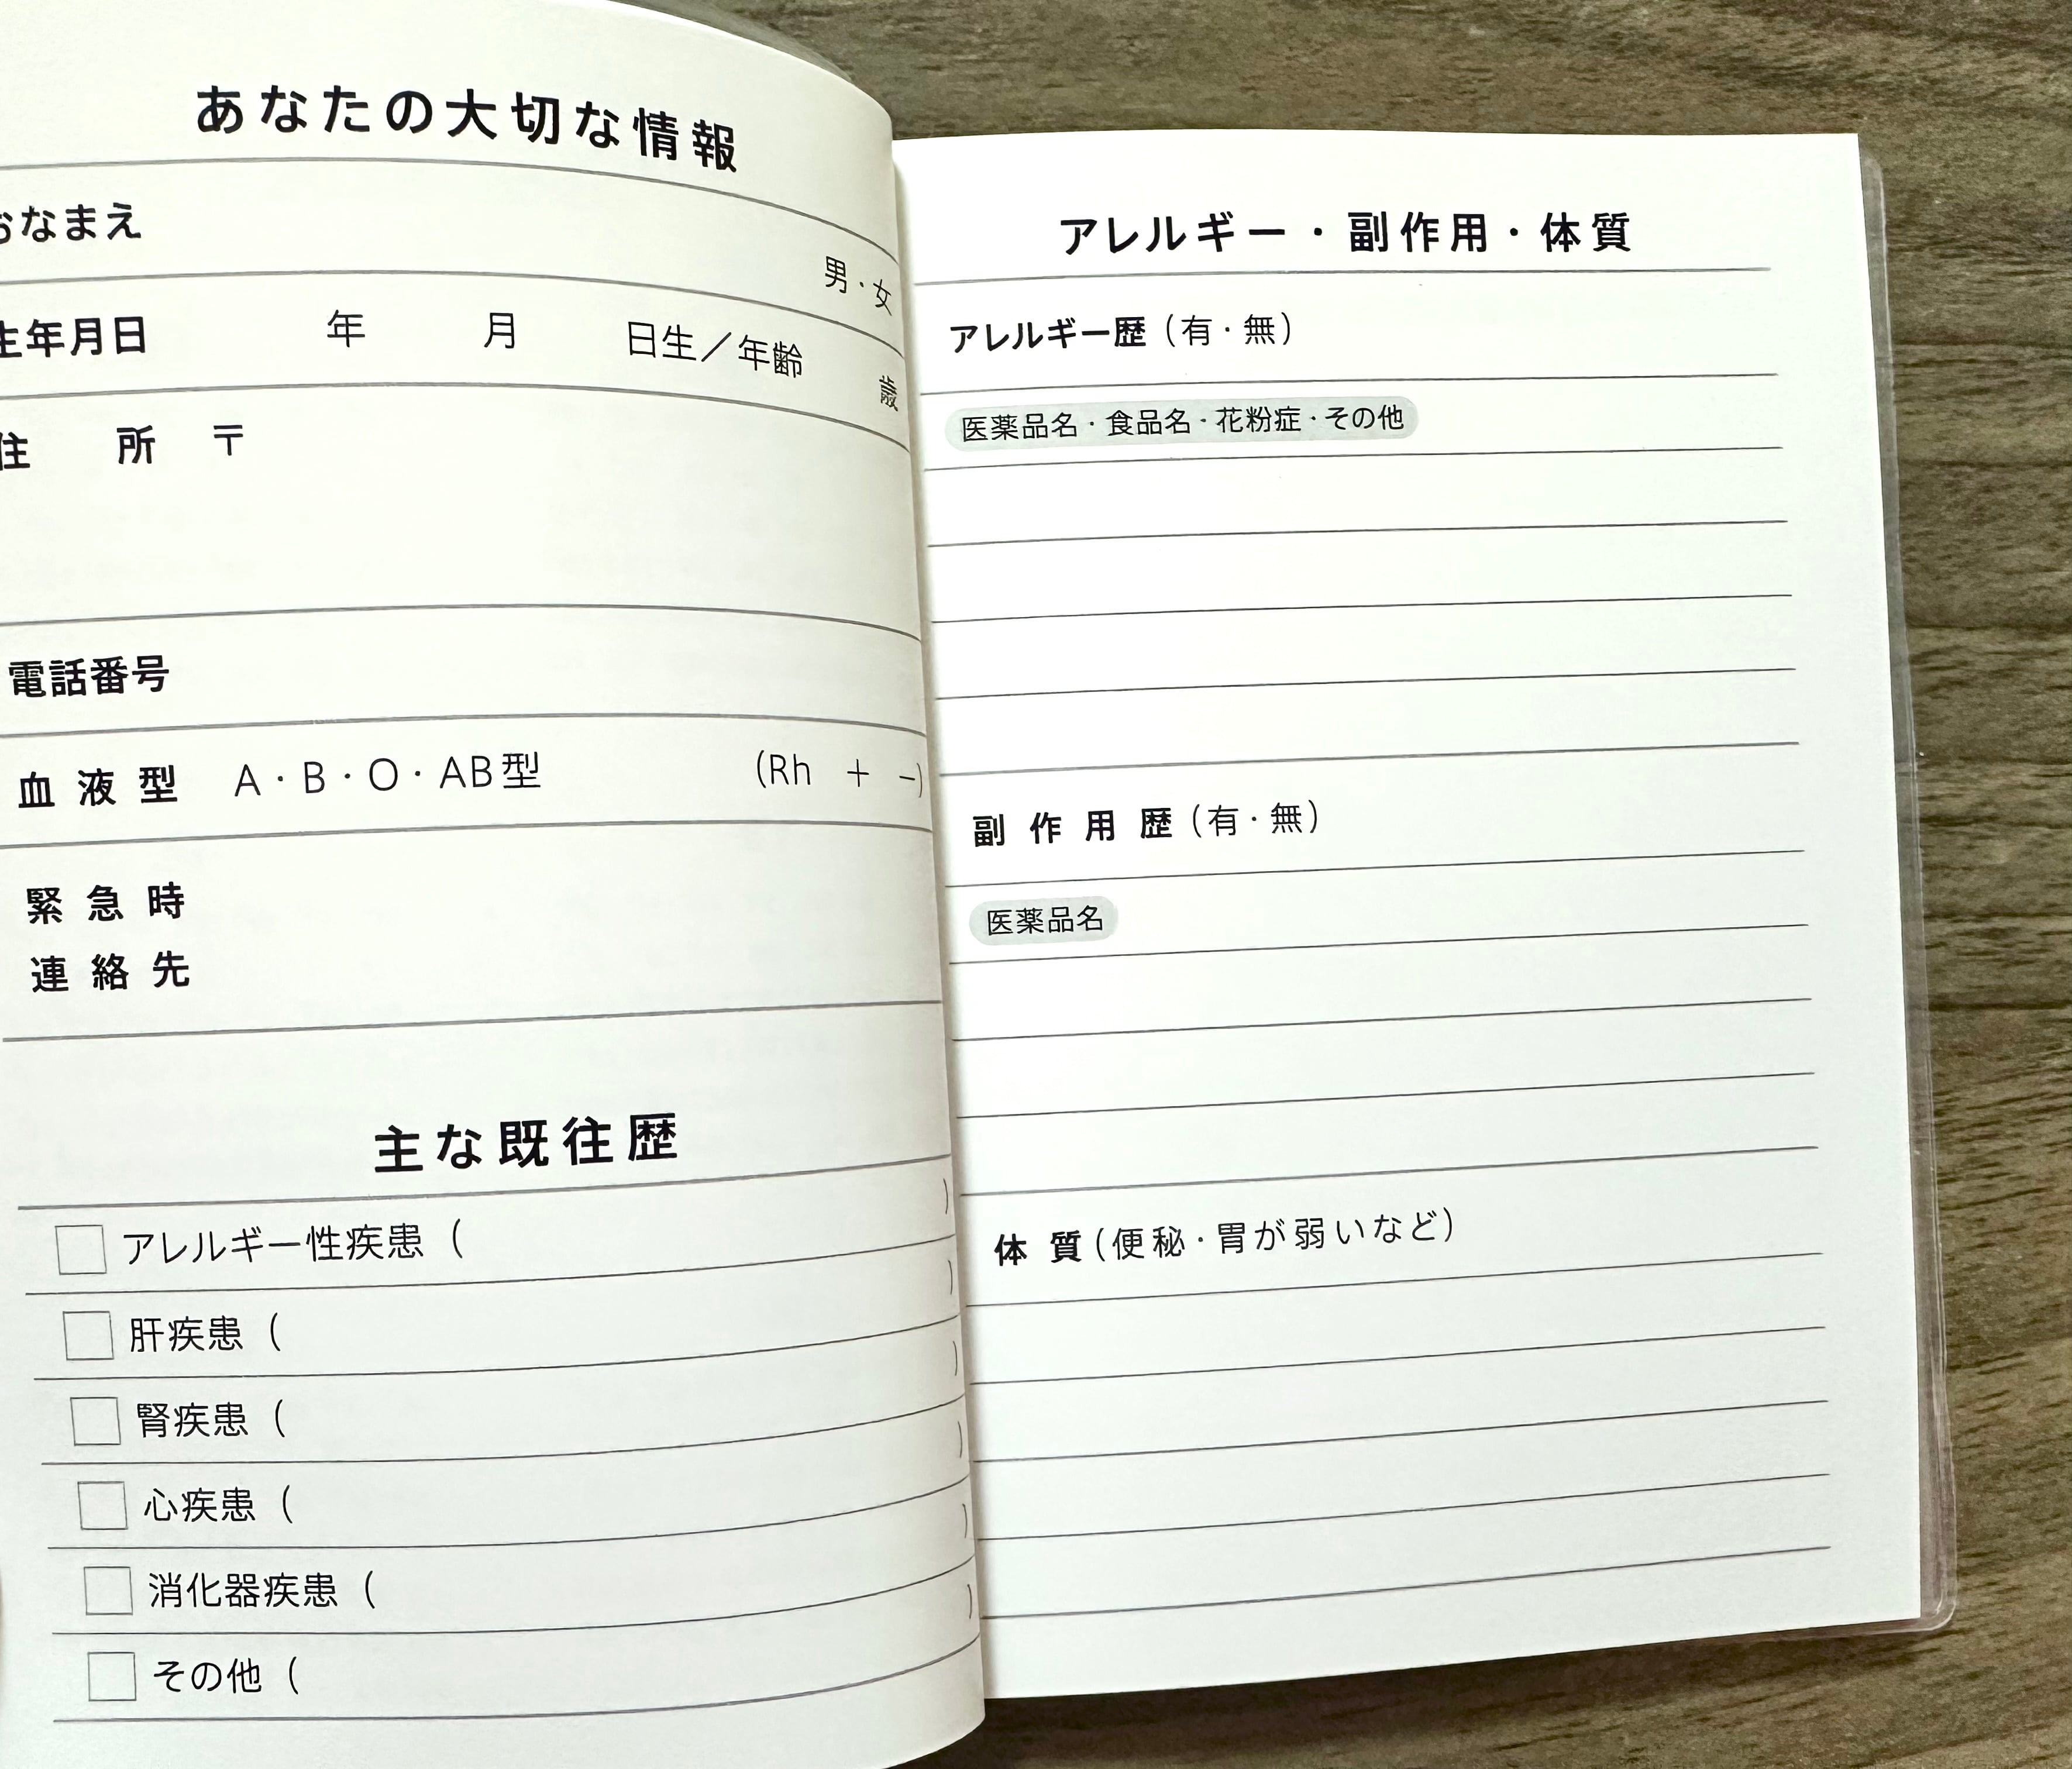 あなたの大切な情報
おなまえ 男・女
生年月日 年 月 日生／年齢 歳
住 所 〒
電話番号
血液型 A・B・O・AB型 (Rh + −)
緊急時
連絡先
主な既往歴
アレルギー性疾患 ( )
肝疾患 ( )
腎疾患 ( )
心疾患 ( )
消化器疾患 ( )
その他 ( )
アレルギー・副作用・体質
アレルギー歴 (有・無)
医薬品名・食品名・花粉症・その他
副作用歴 (有・無)
医薬品名
体質 (便秘・胃が弱いなど)